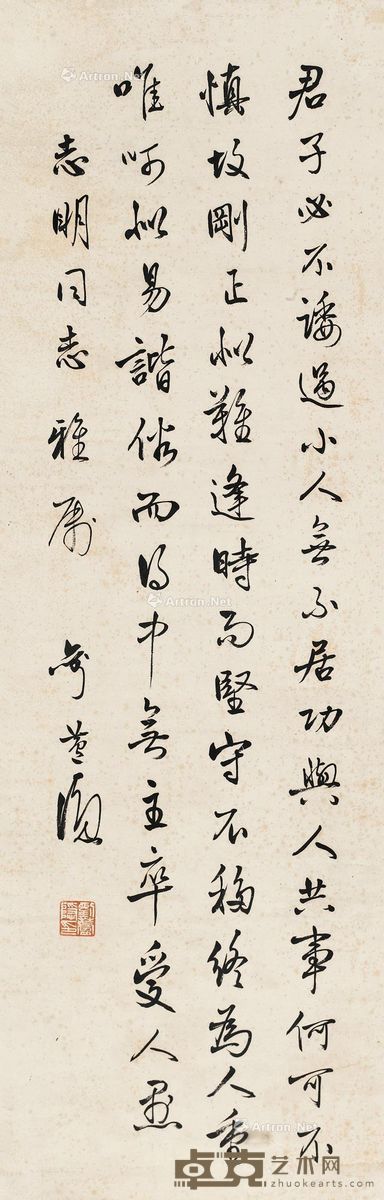 君子必不諉過小人無不居功與人共事何可不
慎故剛正似難逢時而堅守不移終為人重
唯呵似易諧俗而得中無主卒受人惡
志明同志雅屬
Artron.Net
卓克艺术网
zhuokearts.com